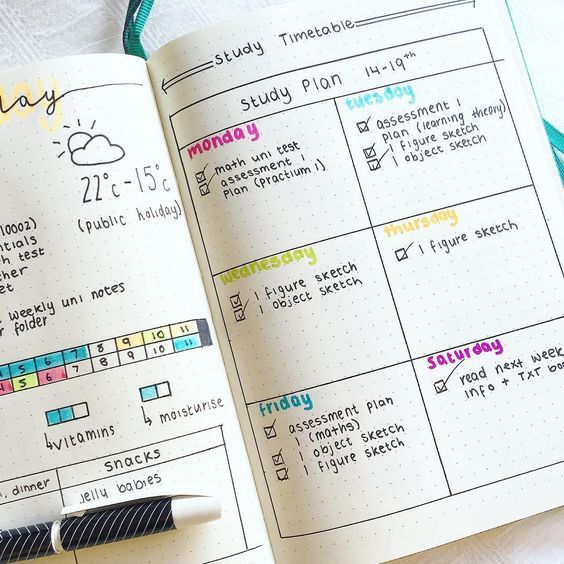 day
22°c - 15°c
(public holiday)
10002)
test
weekly uni notes
folder
5 6 7 8 9 10 11
5 6 7 8 9 10 11
vitamins
moisturise
snacks
dinner
jelly babies
Study Timetable
Study Plan 14-19th
monday
math uni test
assessment 1
plan (practium 1)
tuesday
assessment 1
plan (learning theory)
1 figure sketch
1 object sketch
wednesday
1 figure sketch
1 object sketch
thursday
1 figure sketch
friday
assessment plan
1 (maths)
1 object sketch
1 figure sketch
saturday
read next week
info + TXT